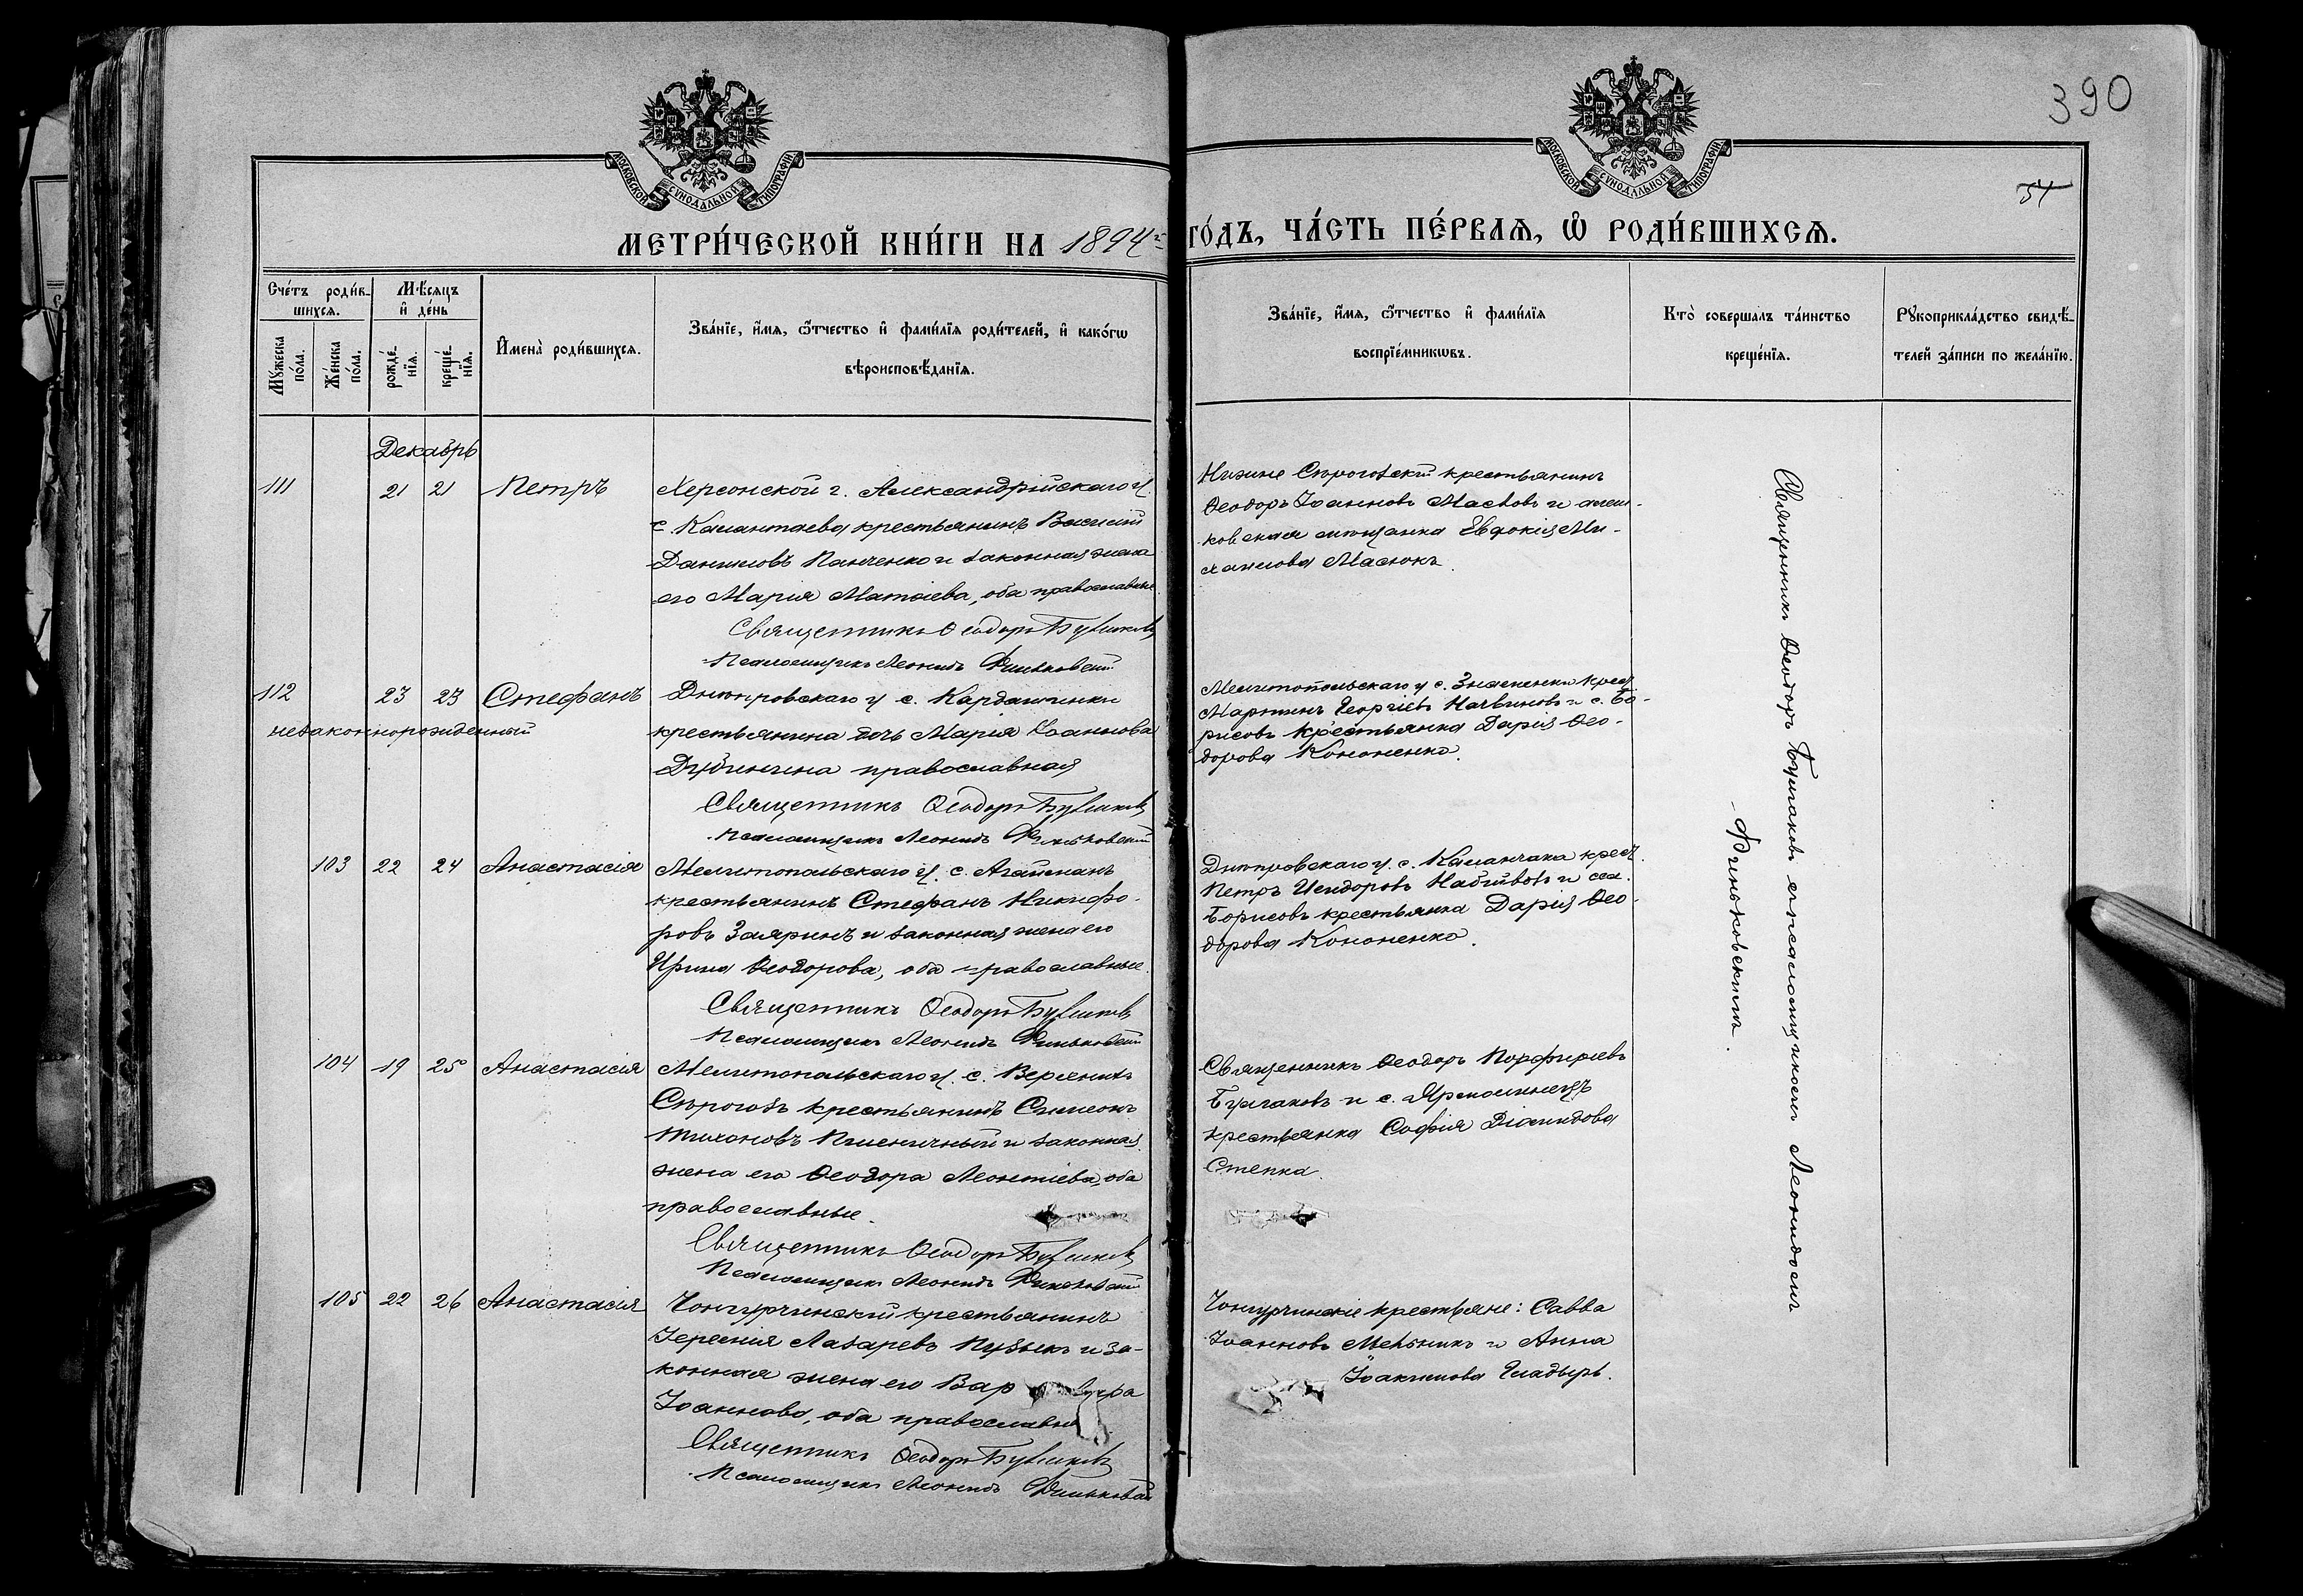 390
54
МОСКОВСКОЙ СѴНОДАЛЬНОЙ ТИПОГРАФІИ
МОСКОВСКОЙ СѴНОДАЛЬНОЙ ТИПОГРАФІИ
МЕТРИ́ЧЕСКОЙ КНИ́ГИ НА 1894 й
ГО́ДЪ, ЧА́СТЬ ПЕ́РВАЯ, Ѡ҆ РОДИ́ВШИХСЯ.
Сче́тъ роди́в-
шихся.
Мꙋ́жеска по́ла.
Же́нска по́ла.
Мѣ́сяцъ
и҆ де́нь
рожде́-
нїя.
креще́-
нїя.
И҆мена̀ роди́вшихся.
Зва́нїе, и҆́мя, ѻ҆́тчество и҆ фами́лїя роди́телей, и҆ како́гѡ
вѣроисповѣ́данїя.
Зва́нїе, и҆́мя, ѻ҆́тчество и҆ фами́лїя
воспрїе́мникѡвъ.
Кто̀ совершалъ та́инство
креще́нїя.
Рꙋкоприкла́дство свидѣ́-
телей за́писи по жела́нїю.
Декабрь
111 21 21 Петръ
Херсонской г. Александрійскаго у.
с. Камантаева крестьянинъ Василій
Даниловъ Панченко и законная жена
его Марія Матѳіева, оба православные
Священникъ Ѳеодоръ Булгаковъ
Псаломщикъ Леонидъ Финьковскій
Нижне Сѣрогозскій крестьянинъ
Ѳеодоръ Іоанновъ Масловъ и алеш-
ковская мѣщанка Евдокія Ми-
хаилова Масюкъ.
112 23 23 Стефанъ
незаконнорожденный
Днѣпровскаго у с. Кардашинки
крестьянина дочь Марія Іоаннова
Дубинина православная
Священникъ Ѳеодоръ Булгаковъ
Псаломщикъ Леонидъ Финьковскій
Мелитопольскаго у с. Знаменки крест.
Мартинъ Георгіевъ и с. Бо-
рисовъ крестьянка Дарія Ѳео-
дорова Кононенко.
103 22 24 Анастасія
Мелитопольскаго у. с. Агайманъ
крестьянинъ Стефанъ Никифо-
ровъ Заяринъ и законная жена его
Ирина Ѳеодорова, оба православные.
Священникъ Ѳеодоръ Булгаковъ
Псаломщикъ Леонидъ Финьковскій
Днѣпровскаго у. с. Каланчака крест.
Петръ Исидоровъ и сел.
Борисовъ крестьянка Дарія Ѳео-
дорова Кононенко.
104 19 25 Анастасія
Мелитопольскаго у. с. Верхнихъ
Сѣрогозъ крестьянинъ Симеонъ
Тихоновъ Пшеничный и законная
жена его Ѳеодора Леонтіева, оба
православные.
Священникъ Ѳеодоръ Булгаковъ
Псаломщикъ Леонидъ Финьковскій
Священникъ Ѳеодоръ Порфиріевъ
Булгаковъ и с. Ярмолинецъ
крестьянка Софія Діамидова
Степка.
105 22 26 Анастасія
Чонгурчинскій крестьянинъ
Іеремія Лазаревъ Пузыкъ и за-
конная жена его Вар вара
Іоаннова, оба православны
Священникъ Ѳеодоръ Булгаковъ
Псаломщикъ Леонидъ Финьковскій
Чонгурчинскіе крестьяне: Савва
Іоанновъ Мельникъ и Анна
Іоакимова Гладырь.
Священникъ Ѳеодоръ Булгаковъ съ псаломщикомъ Леонидомъ
Финьковскимъ.